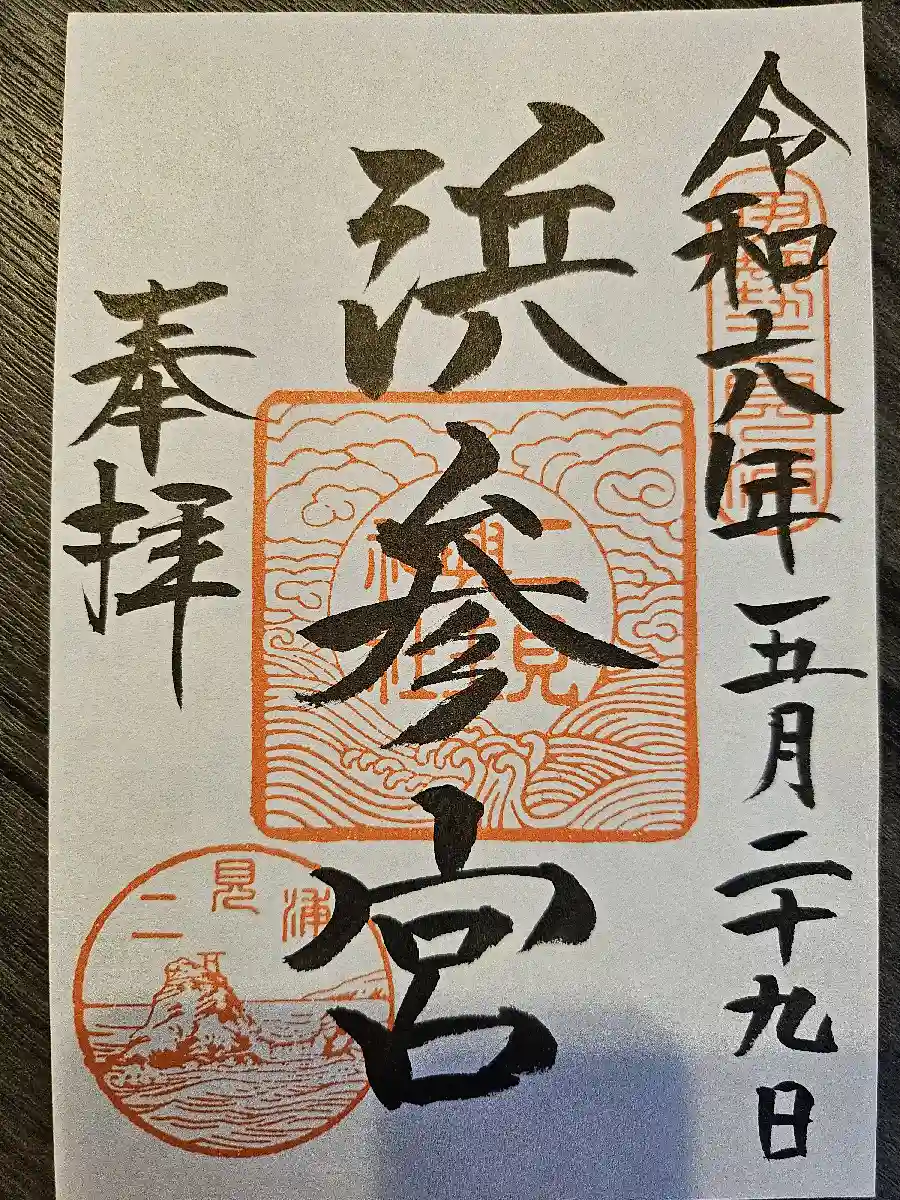 令和六年五月二十九日
浜参宮
奉拝
二見
興玉
神社
二見浦